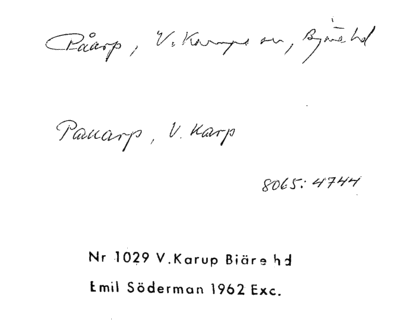 Påarp, V. Karups sn, Bjäre hd
Paaarp, V. Karp
8065: 4744
Nr 1029 V. Karup Bjäre hd
Emil Söderman 1962 Exc.